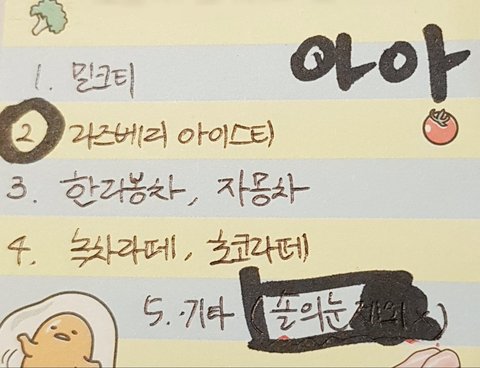 아아
1. 밀크티
2 라즈베리 아이스티
3. 한라봉차, 자몽차
4. 녹차라떼, 초코라떼
5. 기타 (솔의눈 제외)